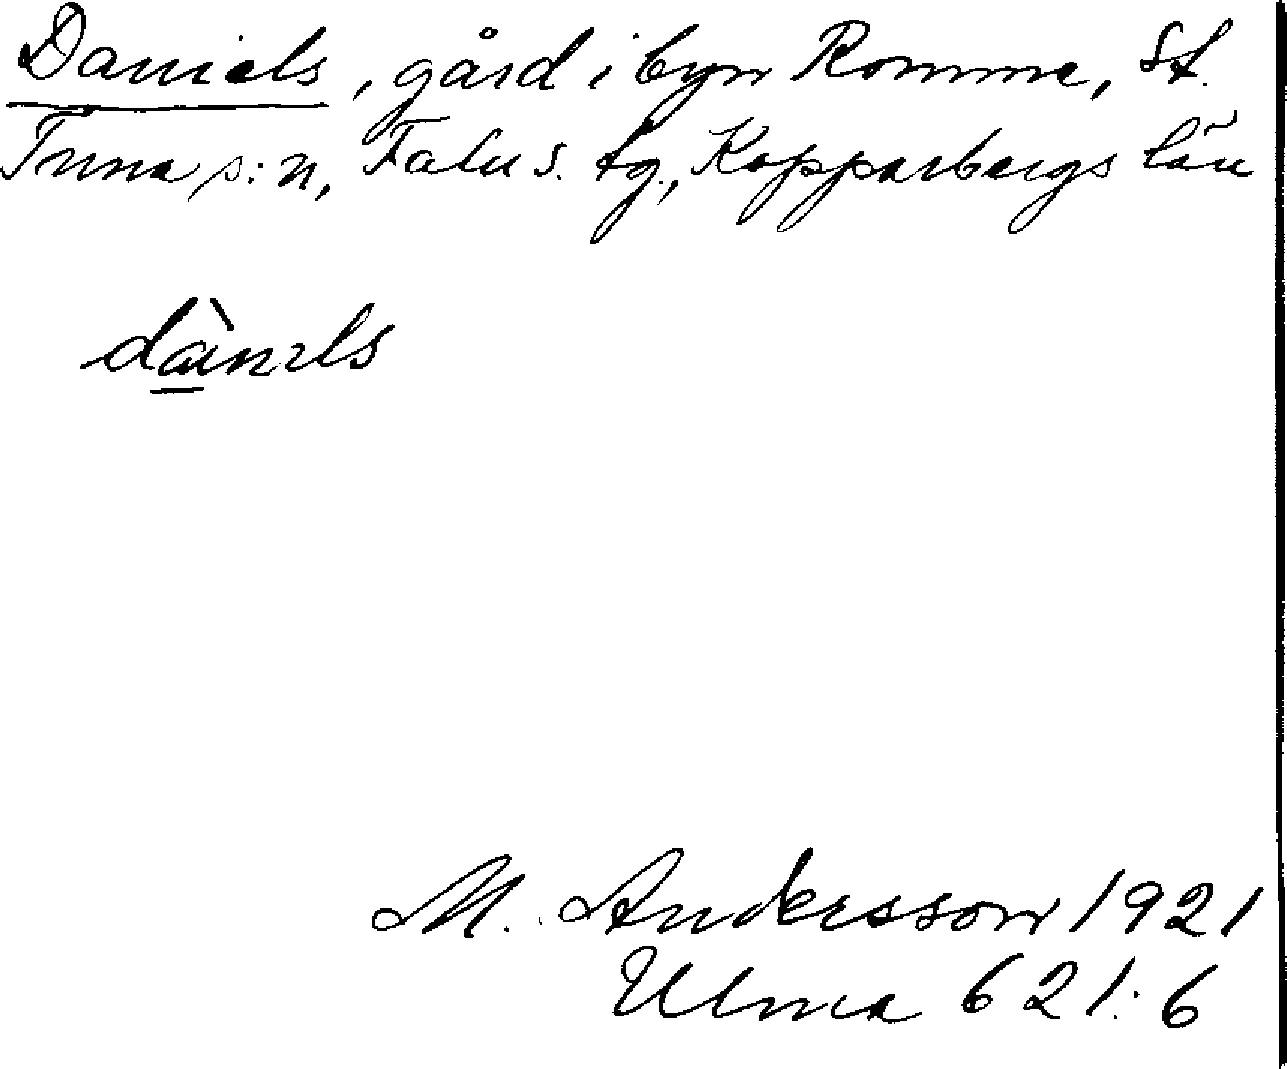 Daniels, gård i byn Romme, St.
Tuna s:n, Falu s. tg., Kopparbergs län
dànɩls
M. Andersson 1921
Ulma 621:6